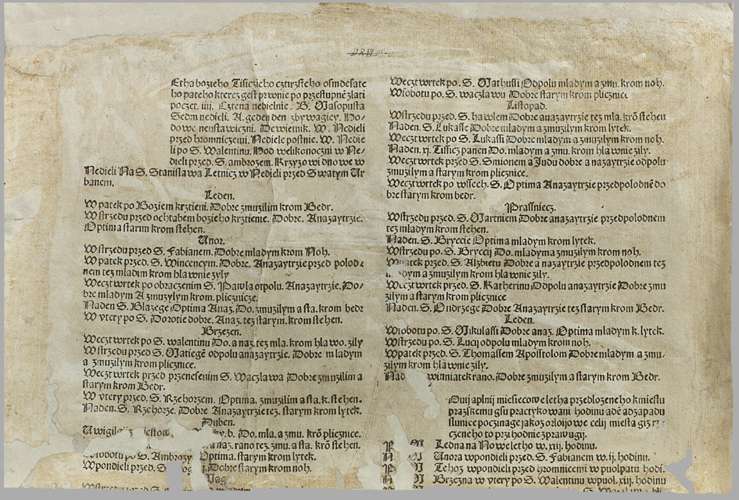 Letha bozieho Tisiczieho cztirsteho osmdesate
ho pateho kterez gest prwnie po przestupne zlati
poczet. iiij. Cztena nedielnie. B. Masopusta
Sedm nedieli. A. geden den zbywagicy. Ho
dowe nenstawiczni. Dewietnik. W. Nedieli
przed hromniczemi. Nediele postnie. W. Nedie
li po S. Walentinu. Hod welikonoczni w Ne
dieli przed. S. ambrozem. Kryzowi dnowe w
Nedieli Na S. Stanislawa Letnicz w Nedieli przed Swatym Ur
banem.
Leden.
W patek po Boziem krztieni. Dobre zmuzilim krom Bedr.
W strzedu przed ochtabem bozieho krztienie. Dobre. Anazaytrzie.
Optima starim krom stehen.
Unor.
W strzedu przed S. Fabianem. Dobre mladym krom Noh.
W patek przed. S. Wincencym. Dobre. Anazaytrzie przed poled
nem tez mladim krom hlawnie zyly
Weczt wrtek po obraczenim S. Pawla otpolu. Anazaytrzie. Do
bre mladym A zmuzylym krom. plicznicze.
Naden S. Blazege Optima Anaz. Do. zmuzilym a sta. krom bedr
W vtery po S. Dorotie dobre. Anaz. tez starym. krom stehen.
Brzezen.
Weczt wrtek po S. walentinu Do. a naz tez mla. krom hla. wo. zily
W strzedu przed S. Matiege odpolu anazaytrzie. Dobre mladym
a zmuzilym krom plicnice.
Weczt wrtek przed przenesenim S. Waczlawa Dobre zmuzilim a
starym krom Bedr.
W vtery przed. S. Rzehorzem. Optima. zmuzilim a sta. k. stehen.
Naden. S. Rzehorze. Dobre Anazaytrzie tez. starym krom lytek.
Duben.
U wigili b. Do. mla. a zmu. krom plicnice.
naz. rano tez zmu. a sta. krom stehen.
W sobotu po S. Ambrozy Optima. starym krom lytek.
W pondieli przed. S. Dobre starym krom noh.
Weczt wrtek po. S. Mathussi Odpolu mladym a zmu. krom noh.
W sobotu po. S. waczlawu Dobre starym krom plicznice
Listopad.
W strzedu przed. S. hawlem Dobre anazaytrzie tez mla. kro stehen
Naden S. Lukasse Dobre mladym a zmuzilym krom lytek.
Weczt wrtek po. S. Lukassi Odpolu mladym a zmuzilym krom noh.
Naden. xj. Tisicz panen Do. mladym a zmu. krom hlawnie zily.
Weczt wrtek przed. S. Simonem a Judu dobre a nazaytrzie odpolu
zmuzilym a starym krom plicznice.
Weczt wrtek po wssech. S. Optima Anazaytrzie przed polednem do
bre starym krom bedr.
Prassinecz.
W strzedu przed. S. Martinem Dobre anazaytrzie przed polednem
tez mladym krom stehen.
Naden. S. Bryccie Optima mladym krom lytek.
W strzedu po. S. Bryccij Do. mladym a zmuzilym krom noh.
W patek przed. S. Alzbietu Dobre a nazaytrzie przed polednem tez
mladym a zmuzilym krom hlawnie zily.
Weczt wrtek przed. S. Katherinu Odpolu anazaytrzie Dobre zmu
zilym a starym krom plicznice
Naden. S. Ondrzege Dobre Anazaytrzie tez starym krom Bedr.
Leden.
W sobotu po. S. Mikulassi Dobre anaz. Optima mladym k. lytek.
W strzedu po. S. Lucij odpolu mladym krom noh.
W patek przed. S. Thomassem Apostolom Dobre mladym a zmu.
zilym krom hlawnie zily.
Nad wiamiatek rano. Dobre zmuzilim a starym krom Bedr.
Puij aplnij miesicowe letha przedlozeneho kmiestu
prazskemu gsu practykowani. hodinu ode zapadu
slunice poczinage jakoz orloijowe celij miesta gistie
czeneho to przihodnie zprawugij.
Ledna na Nowe letho w. xij. hodinu.
Unora w pondieli przed S. Fabianem w ij. hodinu.
Tehoz w pondieli przed hromnicemi w puol patu hodi.
Brzezna w vtery po S. Walentinu w puol. xiij. hodinu